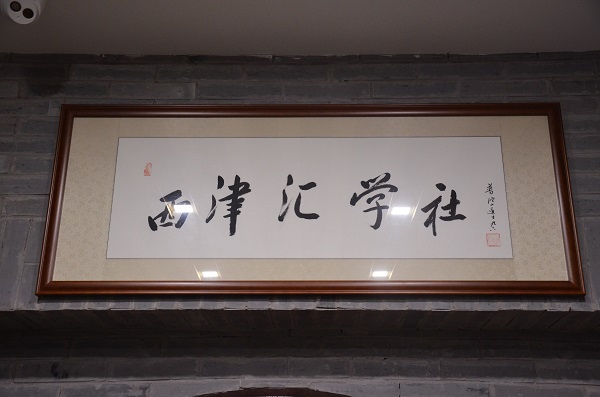 西津汇学社